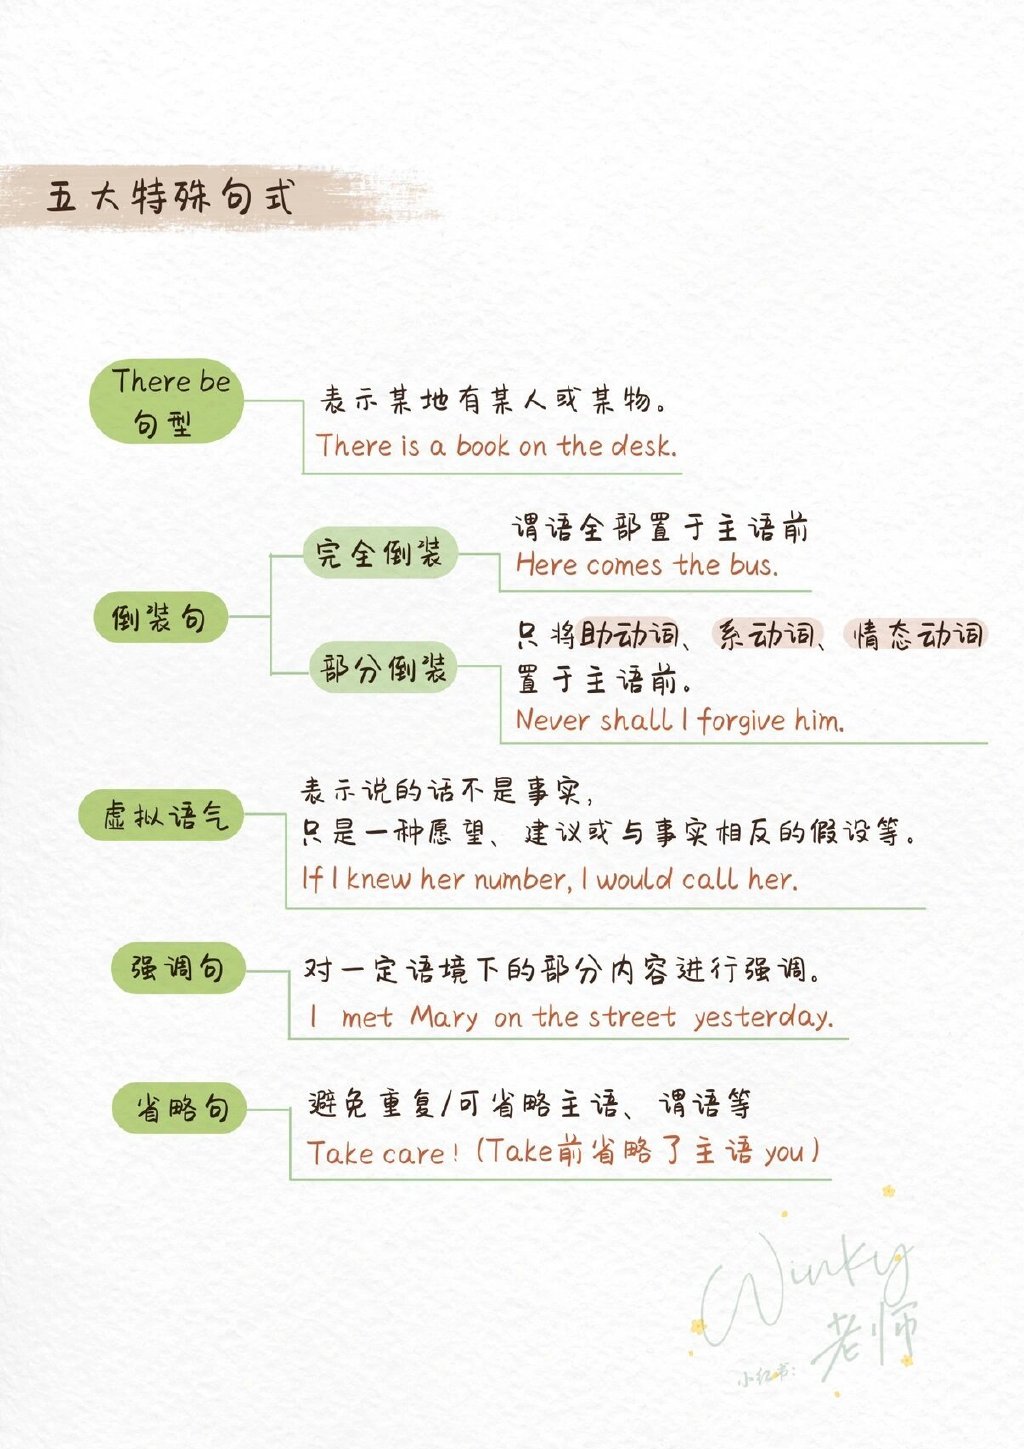 五大特殊句式
There be
句型
表示某地有某人或某物。
There is a book on the desk.
倒装句
完全倒装
谓语全部置于主语前
Here comes the bus.
部分倒装
只将助动词、系动词、情态动词
置于主语前。
Never shall I forgive him.
虚拟语气
表示说的话不是事实,
只是一种愿望、建议或与事实相反的假设等。
If I knew her number, I would call her.
强调句
对一定语境下的部分内容进行强调。
I met Mary on the street yesterday.
省略句
避免重复/可省略主语、谓语等
Take care! (Take前省略了主语 you)
Winky
老师
小红书: